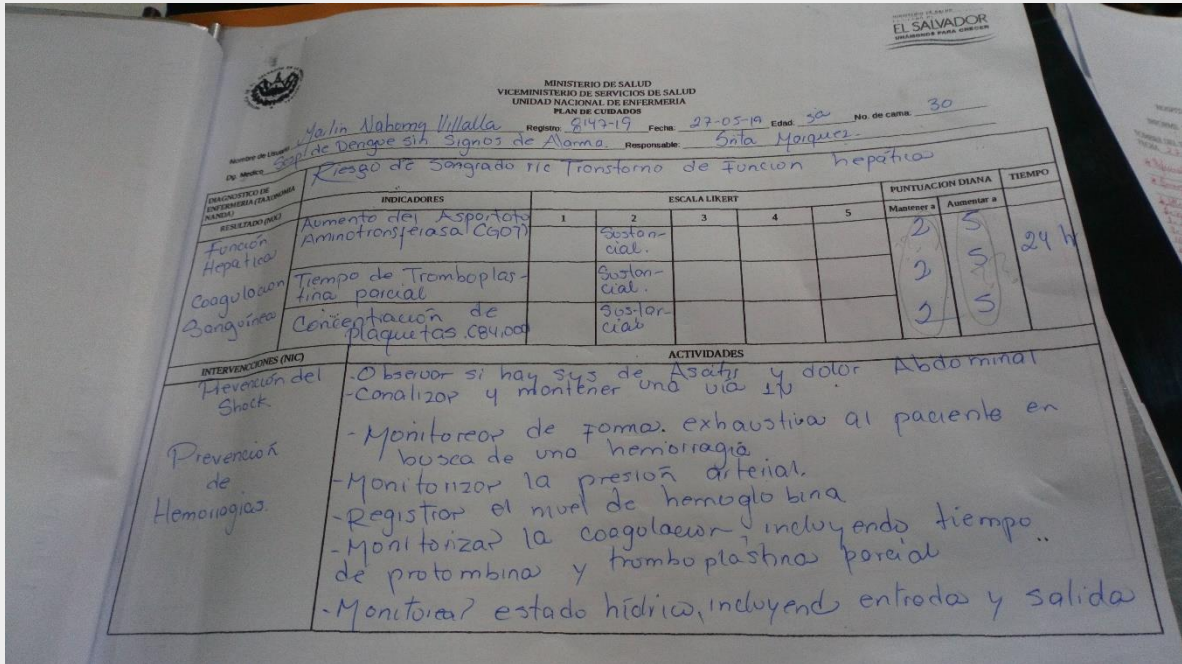 EL SALVADOR
UNÁMONOS PARA CRECER
MINISTERIO DE SALUD
VICEMINISTERIO DE SERVICIOS DE SALUD
UNIDAD NACIONAL DE ENFERMERIA
PLAN DE CUIDADOS
Nombre de Usuario Yalin Nahomy Villalla Registro: 8147-19 Fecha: 27-05-19 Edad: No. de cama: 30
Dg. Medico de Dengue sin Signos de Alarma. Responsable: Snta Marquez.
DIAGNOSTICO DE ENFERMERIA (TAXONOMIA NANDA) Riesgo de Sangrado r/c Transtorno de Función hepática
RESULTADO (NOC) INDICADORES ESCALA LIKERT PUNTUACION DIANA TIEMPO
1 2 3 4 5 Mantener a Aumentar a
Función Hepatica
Aumento del Aspartato Aminotransferasa (GOT) Sustancial. 2 5 24 hr
Coagulacion Sanguínea
Tiempo de Tromboplastina parcial Sustancial. 2 5
Concentración de plaquetas (84,000 Sustancial 2 5
INTERVENCIONES (NIC) ACTIVIDADES
Prevención del Shock
-Observar si hay sys de Asitis y dolor Abdominal
-Canalizar y mantener una vía IV.
Prevención de Hemorragias.
-Monitorear de forma. exhaustiva al paciente en
busca de una hemorragia
-Monitorizar la presión arterial.
-Registrar el nivel de hemoglobina
-Monitorizar la coagulacion, incluyendo tiempo
de protombina y tromboplastina parcial
-Monitorear estado hídrico, incluyend entrada y salida